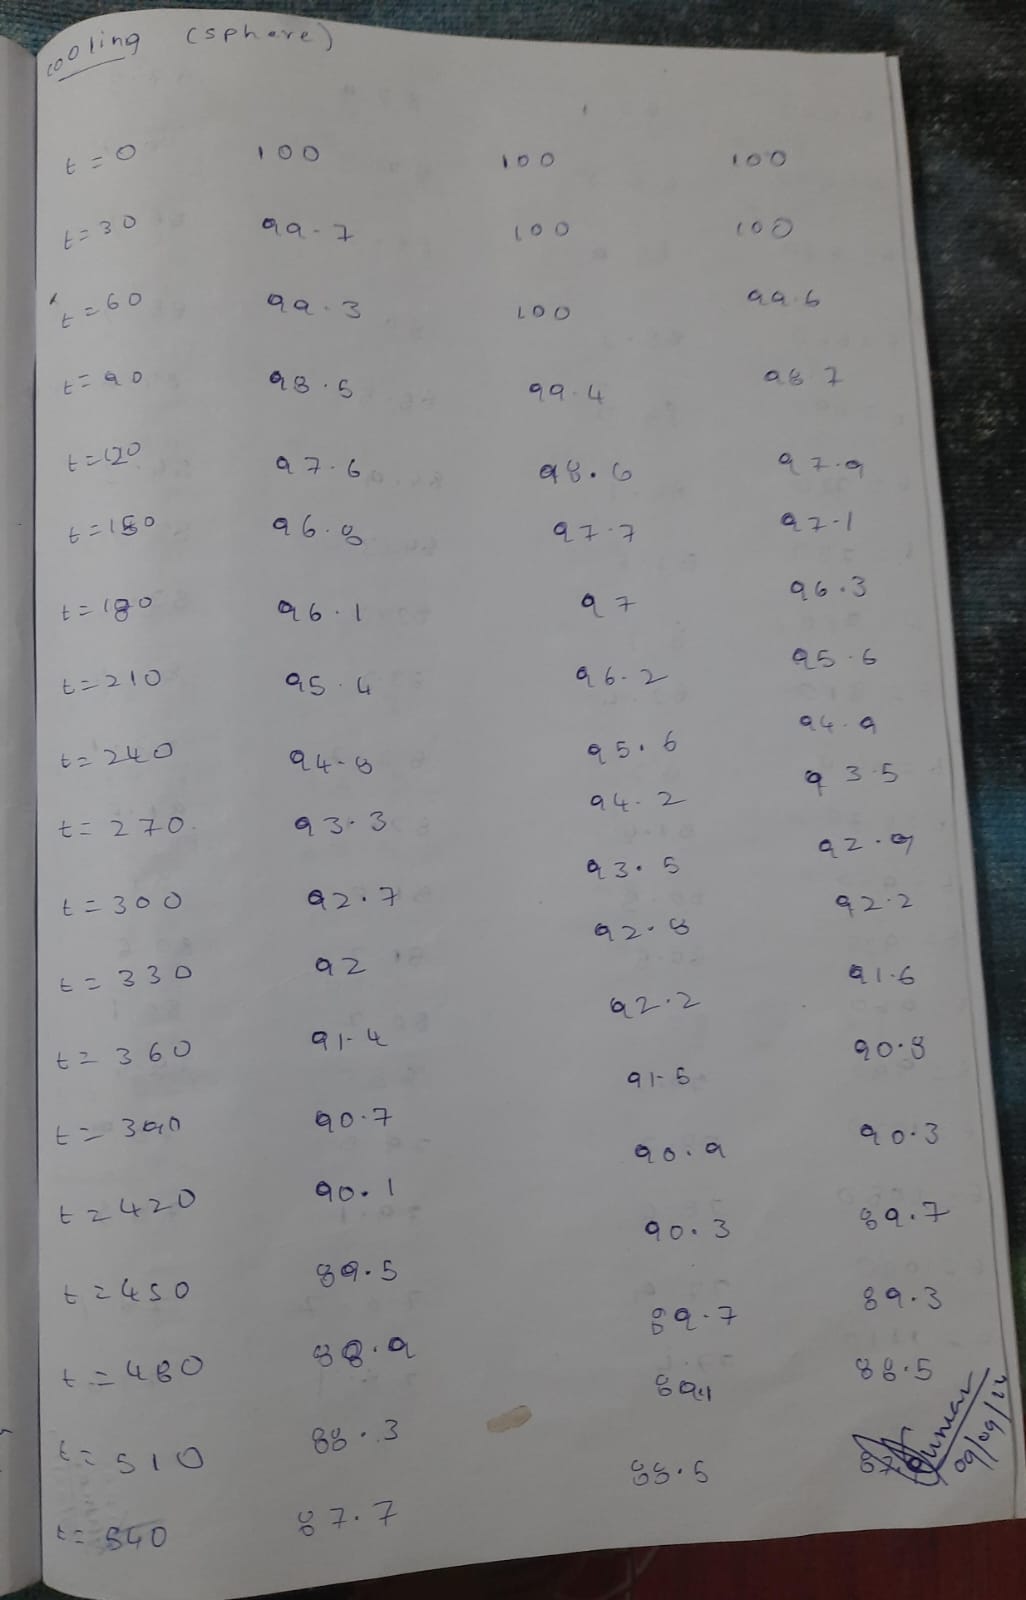 cooling (sphere)
t = 0 100 100 100
t = 30 99.7 100 100
t = 60 99.3 100 99.6
t = 90 98.5 99.4 98.7
t = 120 97.6 98.6 97.9
t = 150 96.8 97.7 97.1
t = 180 96.1 97 96.3
t = 210 95.4 96.2 95.6
t = 240 94.8 95.6 94.9
t = 270 93.3 94.2 93.5
t = 300 92.7 93.5 92.9
t = 330 92 92.8 92.2
t = 360 91.4 92.2 91.6
t = 390 90.7 91.5 90.8
t = 420 90.1 90.9 90.3
t = 450 89.5 90.3 89.7
t = 480 88.9 89.7 89.3
t = 510 88.3 89.1 88.5
t = 540 87.7 88.5
09/09/24